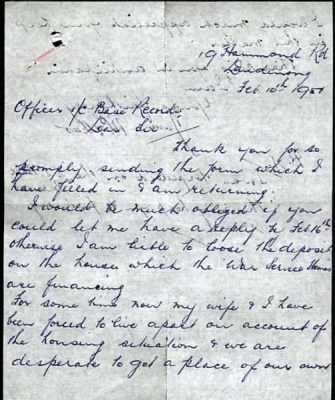 19 Hammond Rd
Dandenong
Feb 10th 1951
Officer i/c Base Records
Dear Sir
Thank you for so
promply sending the form which I
have filled in & am returning.
I would be much obliged if you
could let me have a reply by Feb 16th
otherwise I am liable to loose the deposit
on the house which the War Service Homes
are financing
For some time now my wife & I have
been forced to live apart on account of
the housing situation & we are
desperate to get a place of our own